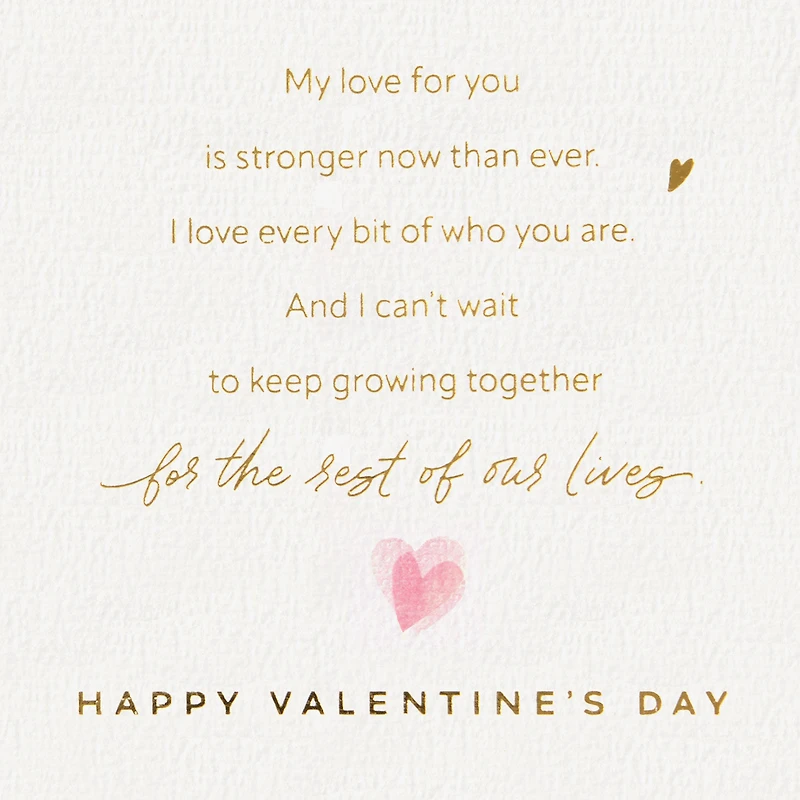 My love for you
is stronger now than ever.
I love every bit of who you are.
And I can't wait
to keep growing together
for the rest of our lives.
HAPPY VALENTINE'S DAY